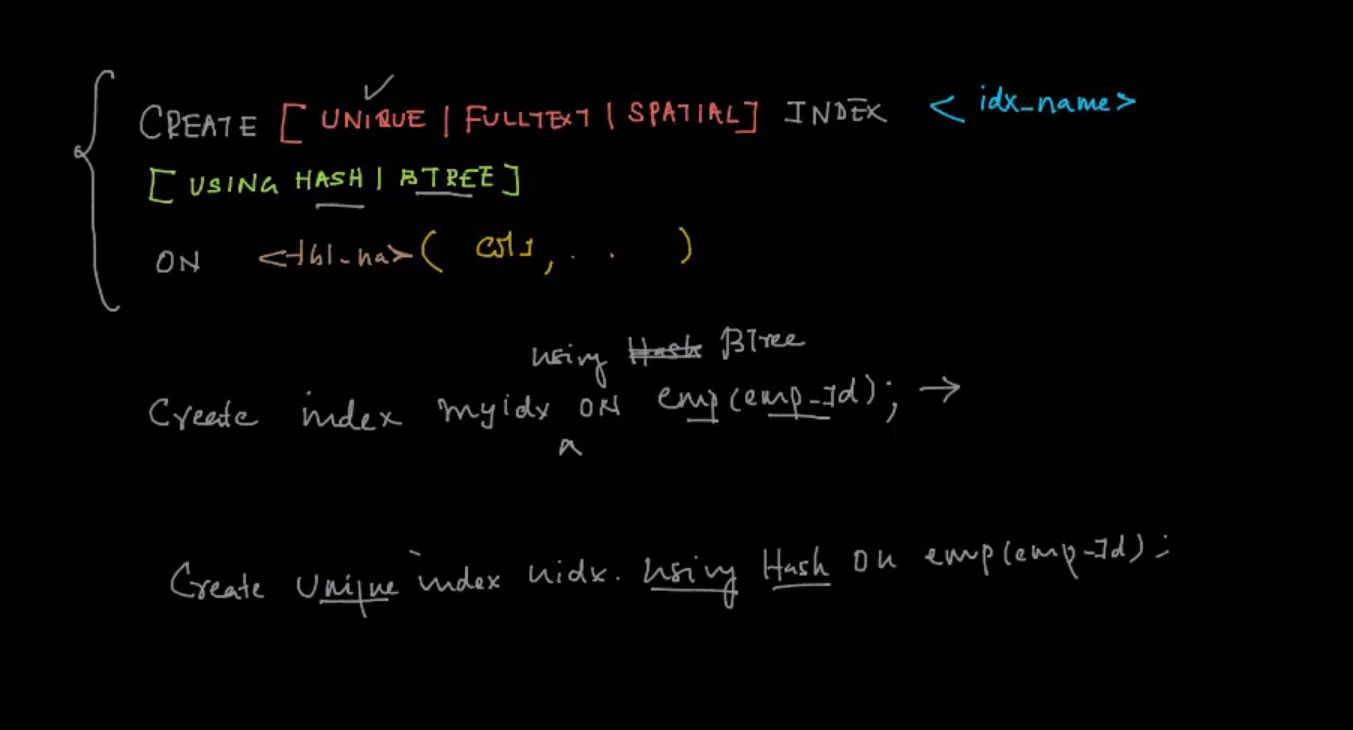 CREATE [ UNIQUE | FULLTEXT | SPATIAL] INDEX < idx_name>
[ USING HASH | BTREE ]
ON <tbl_na> ( col1, . . )
using Hash BTree
Create index myidx ON emp(emp_Id); →
Create Unique index uidx. using Hash on emp(emp_Id);